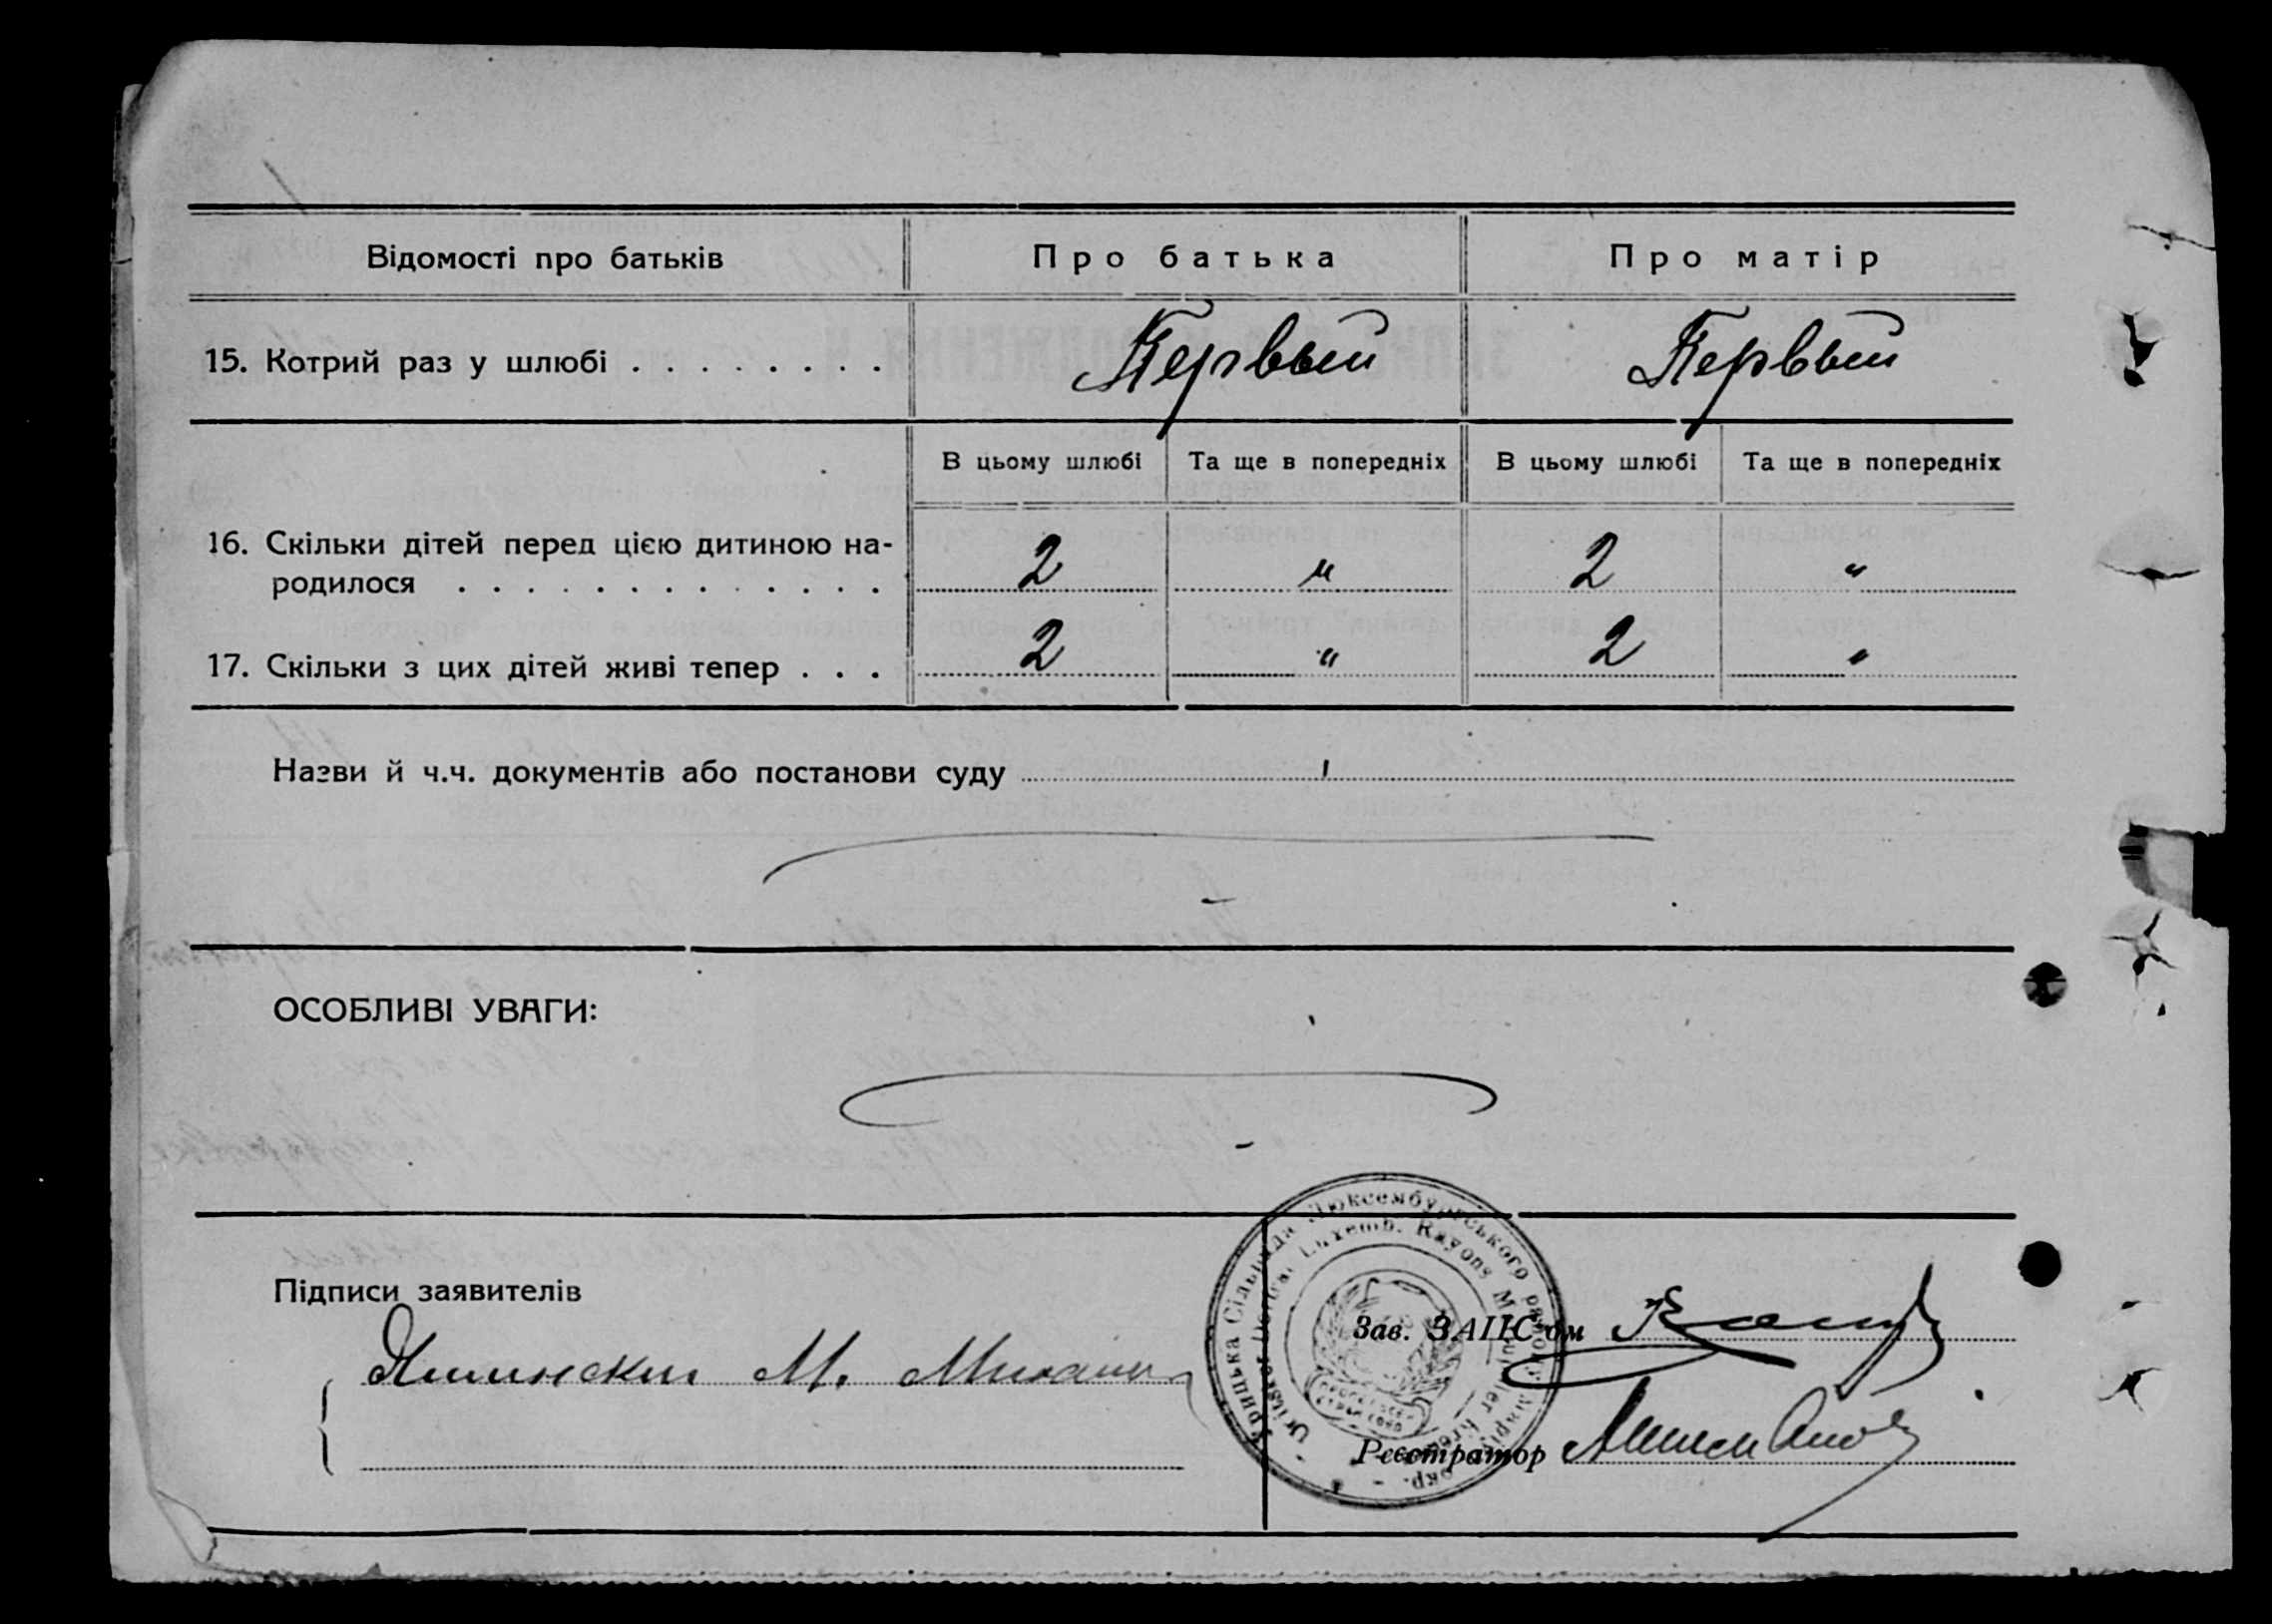 Відомості про батьків Про батька Про матір
15. Котрий раз у шлюбі . . . . . . . . Первый Первый
В цьому шлюбі Та ще в попередніх В цьому шлюбі Та ще в попередніх
16. Скільки дітей перед цією дитиною на-
родилося . . . . . . . . . . . . . 2 " 2 "
17. Скільки з цих дітей живі тепер . . . 2 " 2 "
Назви й ч.ч. документів або постанови суду
ОСОБЛИВІ УВАГИ:
Підписи заявителів
М.
Сільрада Люксембургського району
Luxemb. Rayons
Зав. ЗАГС'ом
Реєстратор